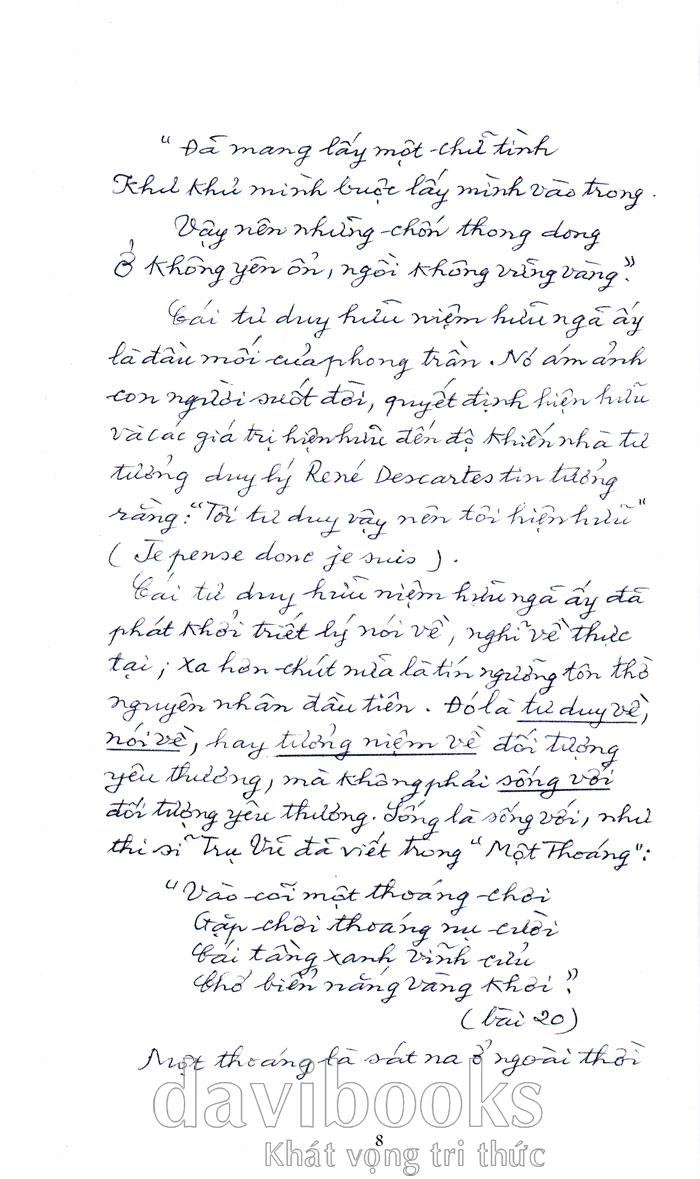 "Đã mang lấy một chữ tình
Khư khư mình buộc lấy mình vào trong.
Vậy nên những chốn thong dong
Ở không yên ổn, ngồi không vững vàng".
Cái tư duy hữu niệm hữu ngã ấy
là đầu mối của phong trần. Nó ám ảnh
con người suốt đời, quyết định hiện hữu
và các giá trị hiện hữu đến độ khiến nhà tư
tưởng duy lý René Descartes tin tưởng
rằng: "Tôi tư duy vậy nên tôi hiện hữu"
(Je pense donc je suis).
Cái tư duy hữu niệm hữu ngã ấy đã
phát khởi triết lý nói về, nghĩ về thực
tại; xa hơn chút nữa là tín ngưỡng tôn thờ
nguyên nhân đầu tiên. Đó là tư duy về,
nói về, hay tưởng niệm về đối tượng
yêu thương, mà không phải sống với
đối tượng yêu thương. Sống là sống với, như
thi sĩ Trụ Vũ đã viết trong "Một Thoáng":
"Vào cõi một thoáng chơi
Gặp chơi thoáng nụ cười
Cái tầng xanh vĩnh cửu
Chở biển nắng vàng khơi".
(bài 20)
Một thoáng là sát na ở ngoài thời
davibooks
8
Khát vọng tri thức